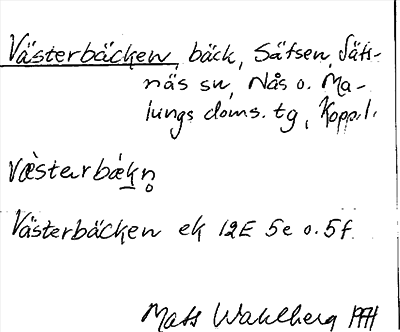 Västerbäcken, bäck, Säfsen, Säfs-
näs sn, Nås o. Ma-
lungs doms. tg, Kopp.l.
væ̀starbækn̥
Västerbäcken ek 12E 5e o. 5f.
Mats Wahlberg 1971